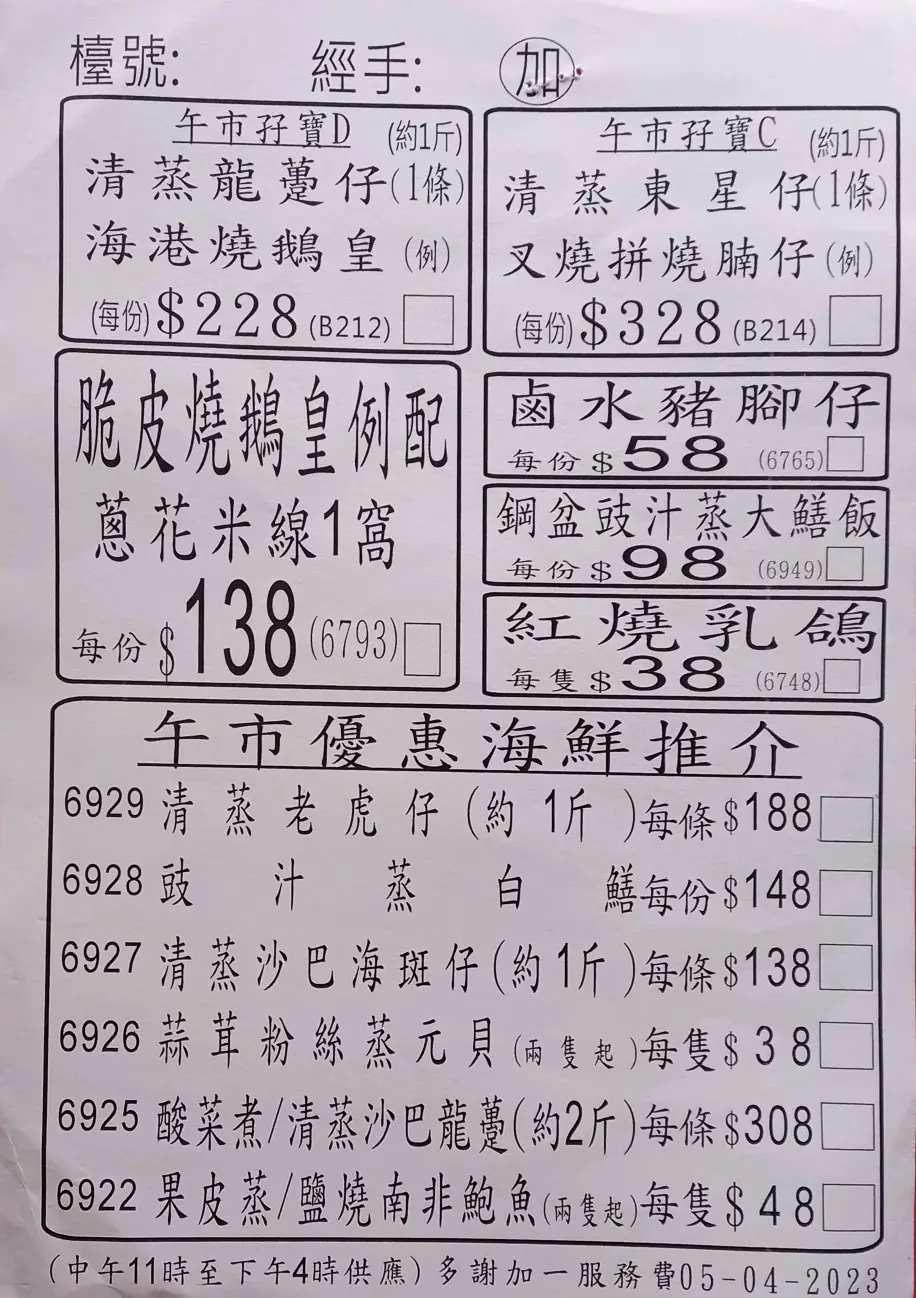 檯號: 經手: 加
午市孖寶D (約1斤)
清蒸龍躉仔(1條)
海港燒鵝皇(例)
(每份)$228(B212)
午市孖寶C (約1斤)
清蒸東星仔(1條)
叉燒拼燒腩仔(例)
(每份)$328(B214)
脆皮燒鵝皇例配
蔥花米線1窩
每份$138(6793)
鹵水豬腳仔
每份$58 (6765)
鋼盆豉汁蒸大鱔飯
每份$98 (6949)
紅燒乳鴿
每隻$38 (6748)
午市優惠海鮮推介
6929 清蒸老虎仔(約1斤)每條$188
6928 豉汁蒸白鱔每份$148
6927 清蒸沙巴海斑仔(約1斤)每條$138
6926 蒜茸粉絲蒸元貝(兩隻起)每隻$38
6925 酸菜煮/清蒸沙巴龍躉(約2斤)每條$308
6922 果皮蒸/鹽燒南非鮑魚(兩隻起)每隻$48
(中午11時至下午4時供應)多謝加一服務費05-04-2023